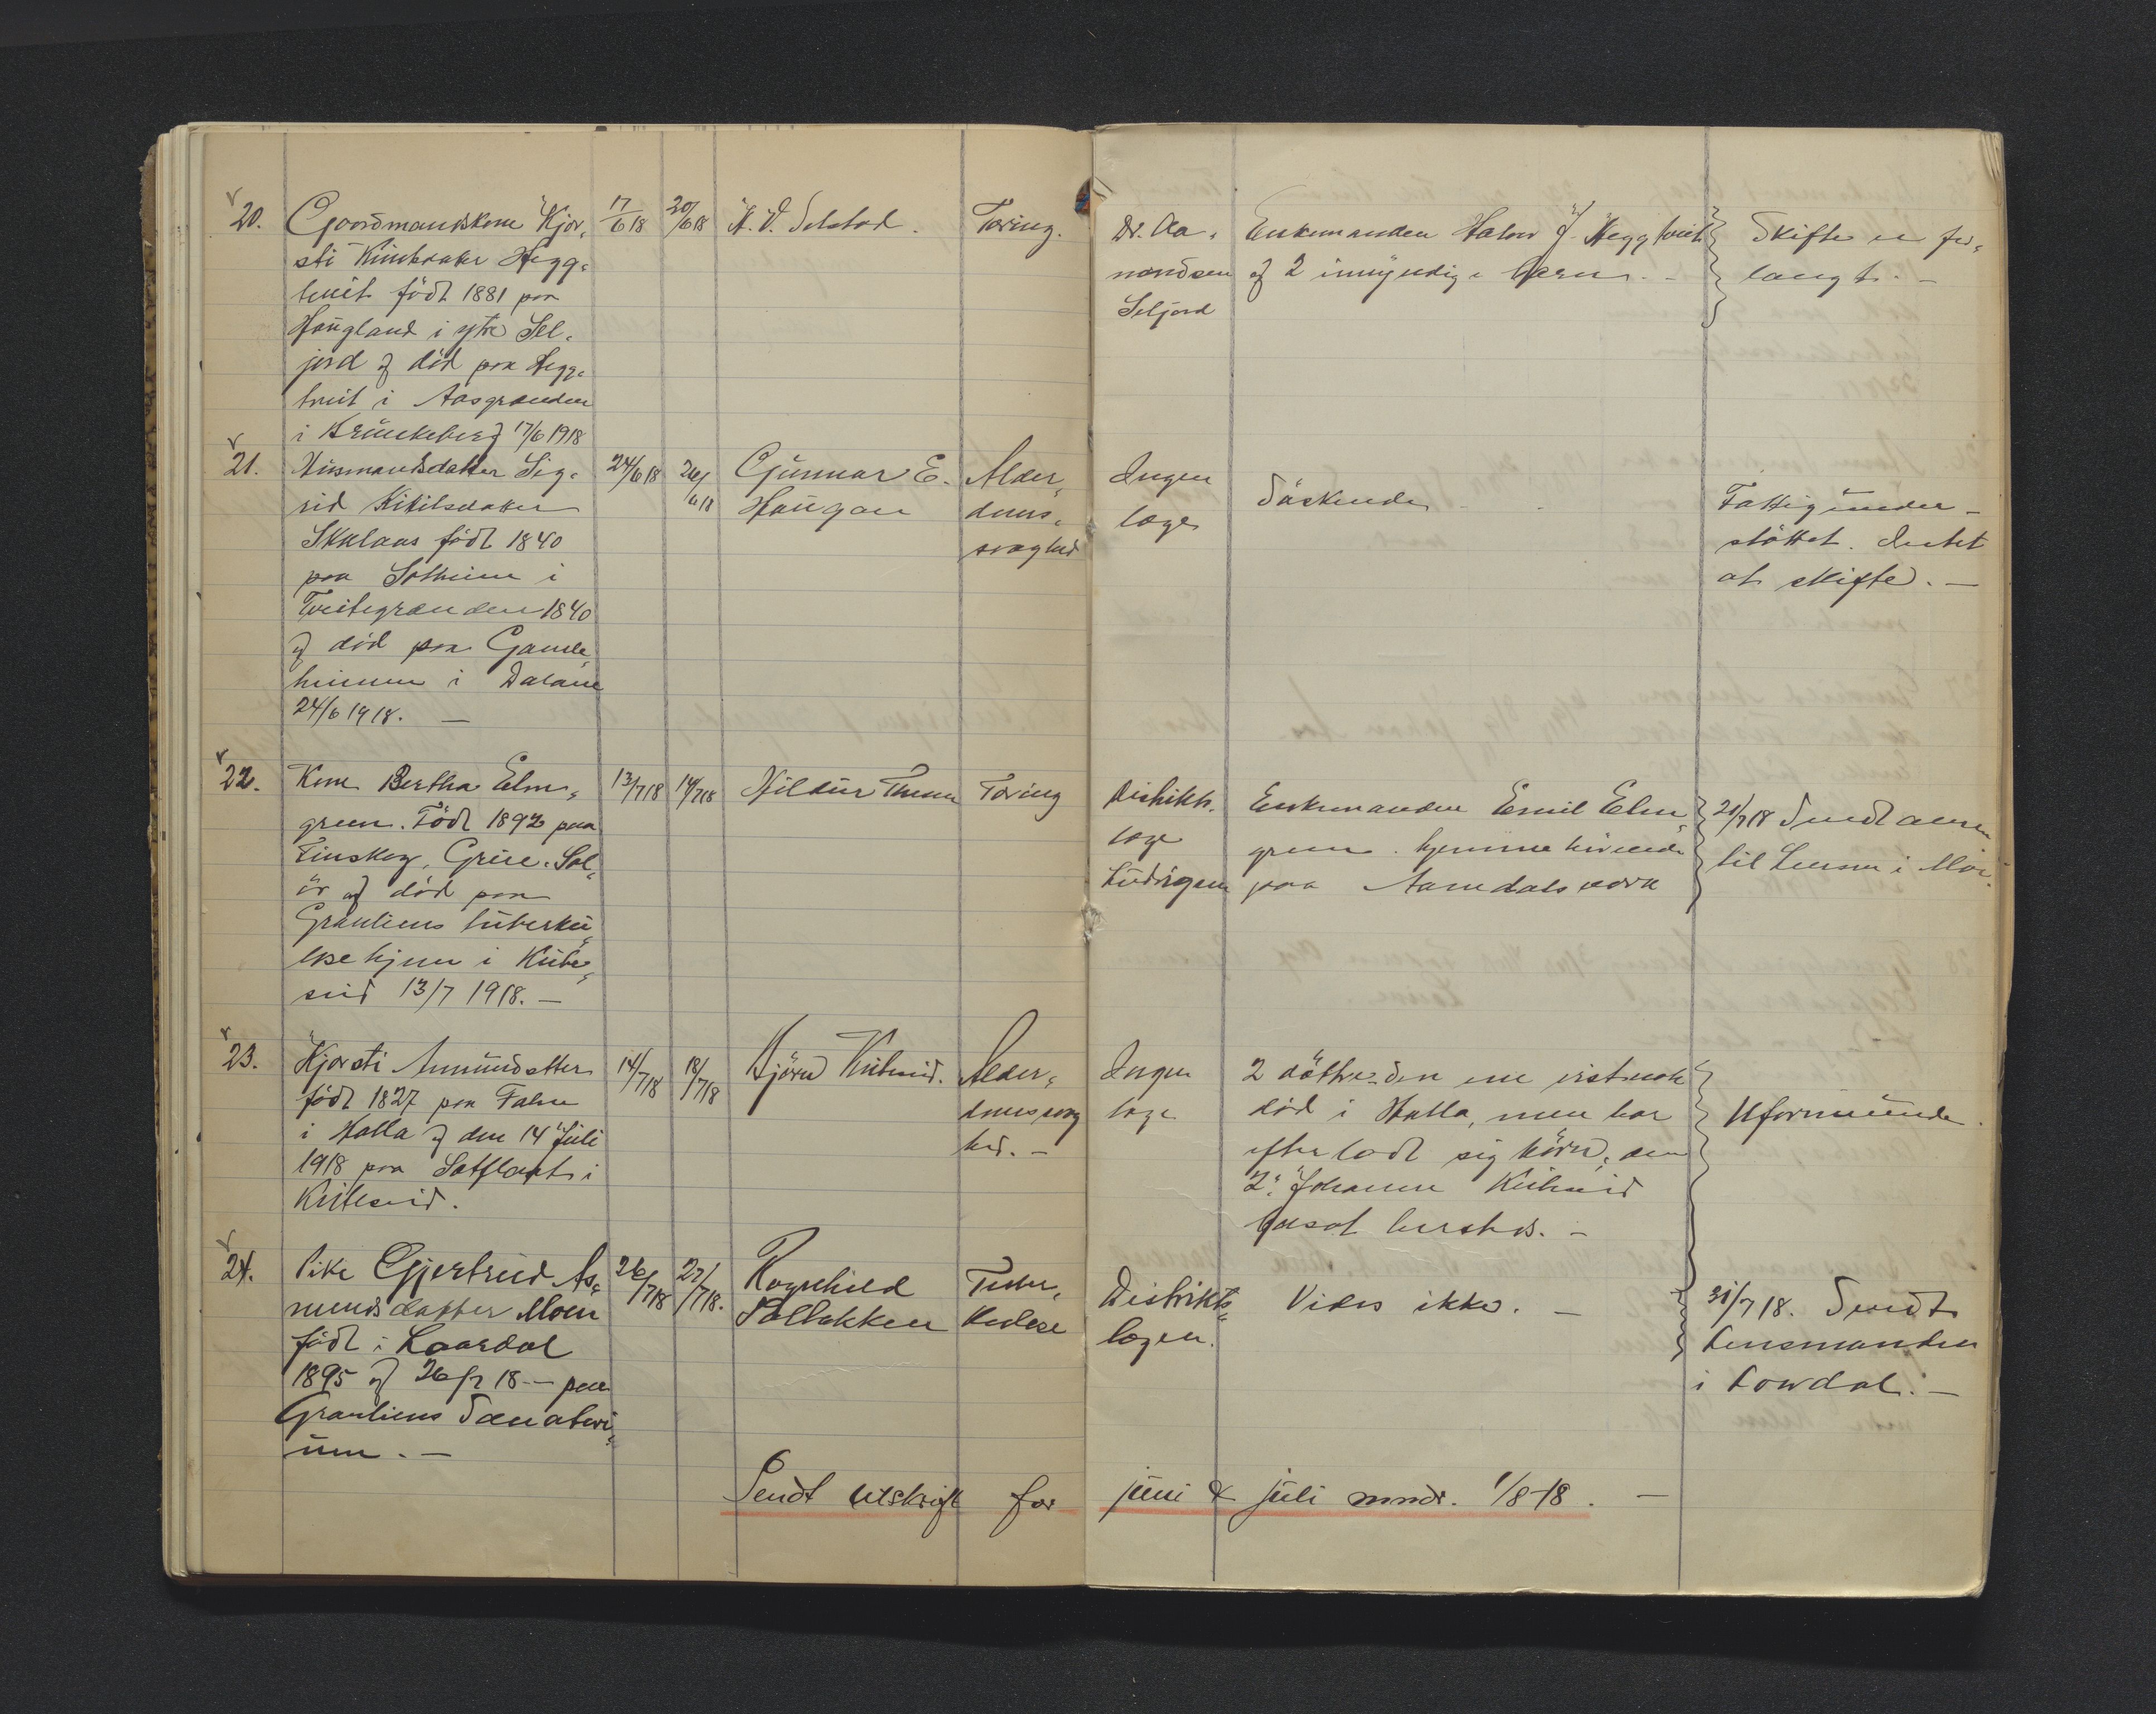 20.
Gaardmandskone Kjer-
sti Knutsdatter Hegg-
tveit født 1881 paa
Haugland i ytre Sel-
jord og död paa Hegg-
tveit i Aasgrænden
i Brunkeberg 17/6 1918
17/6 18
20/6 18
Tæring.
Dr. Aa-
mondsen
Seljord
Enkemanden Halvor J. Heggtveit
og 2 umyndige børn. -
Skifte er for-
langt. -
21.
Husmandsdatter Sig-
rid Kitilsdatter
født 1840
paa Solheim i
Tveitegrænden 1840
og död paa Gamle-
heimen i Dalane
24/6 1918. -
24/6 18
26/
6 18
Gunnar E.
Haugan
Alder-
doms-
svaghed
Ingen
læge
Söskende
Fattigunder-
støttet. Intet
at skifte. -
22.
Kone Bertha Elm-
green. Född 1892 paa
Finskog, Grue. Sol-
ör og död paa
Granliens tuberku-
losehjem i Kvite-
seid 13/7 1918. -
13/7 18
14/7 18
Hildur
Tæring
Distrikts-
læge
Ludvigsen
Enkemanden Emil Elm-
green. hjemmehörende
paa Aamdals værk
21/7 18 Sendt
til i Mo.
23.
Kjersti Amundsdatter
født 1827 paa
i Holla og den 14 Juli
1918 paa i
Kviteseid.
14/7 18
18/7 18
Björn Kviteseid.
Alder-
domssvag
hed. -
Ingen
læge
2 döttre. Den ene
död i Holla, men har
efterladt sig börn, den
2. Johanne Kviteseid
bosat hersteds. -
Uformuende.
24.
Pike Gjertrud As-
mundsdatter Moen
født i Laardal
1895 og 26/7 18 - paa
Granliens Sanatori-
um. -
26/7 18
27/7 18.
Ragnhild
Solbakken
Tuber-
kulose
Distrikts-
lægen.
Vides ikke. -
31/7 18. Sendt
Lensmanden
i Lardal. -
Sendt utskrift for juni & juli mndr. 1/8-18. -